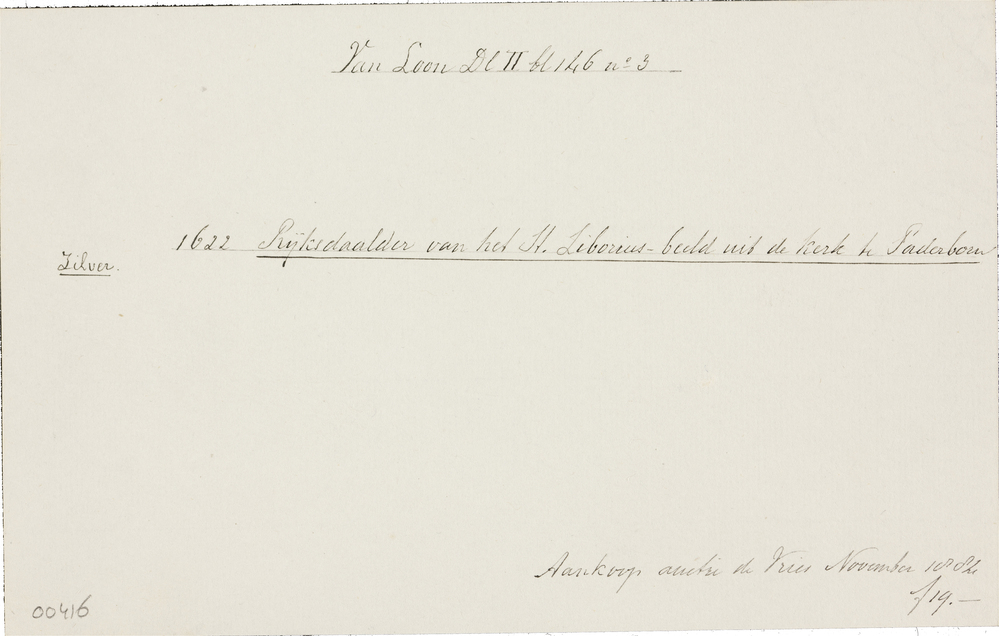 Van Loon Dl II bl 146 no 3
1622 Rijksdaalder van het St. Liborius-beeld uit de kerk te Paderborn
Zilver.
Aankoop auctie de Vries November 1884
f 19.—
00416